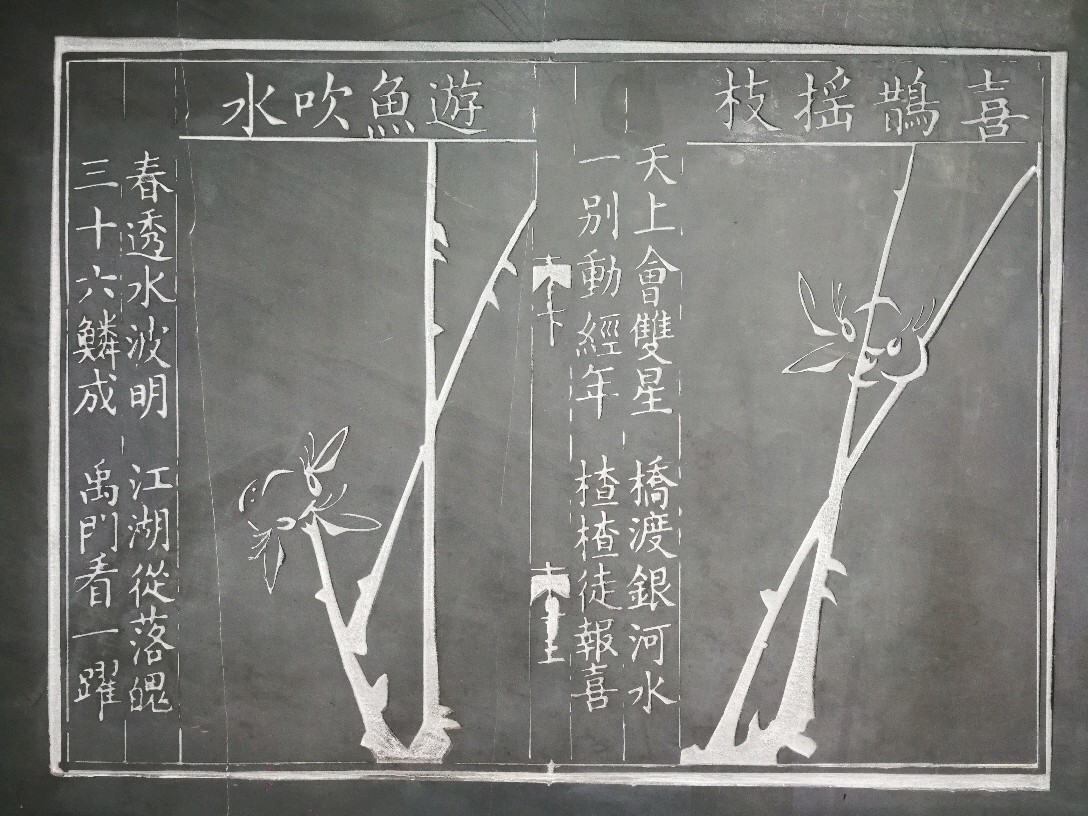 喜鵲摇枝
天上會雙星 橋渡銀河水
一别動經年 楂楂徒報喜
遊魚吹水
春透水波明 江湖從落魄
三十六鱗成 禹門看一躍